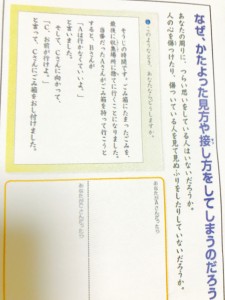 なぜ、かたよった見方や接し方をしてしまうのだろう
あなたの周りに、つらい思いをしている人はいないだろうか。
人の心を傷つけたり、傷ついている人を見て見ぬふりをしたりしていないだろうか。
このようなとき、あなたならどうしますか。
そうじの時間です。ごみ箱にたまったごみを、
最後に収集場所に捨てに行くことになりました。
当番だったAさんがごみ箱を持って行こうと
すると、Bさんが
「Aは行かなくていいよ。」
と言いました。
そして、Cさんに向かって、
「C、お前が行けよ。」
と言って、Cさんにごみ箱をおし付けました。
あなたがAさんだったら
あなたがCさんだったら